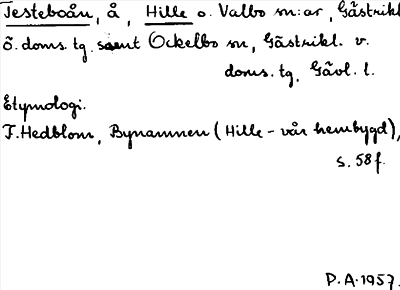 Testeboån, å, Hille o. Valbo sn:ar, Gästrikl.
ö. doms. tg. samt Ockelbo sn, Gästrikl. v.
doms. tg, Gävl. l.
Etymologi.
F. Hedblom, Bynamnen (Hille - vår hembygd),
s. 58 f.
P.A. 1957.